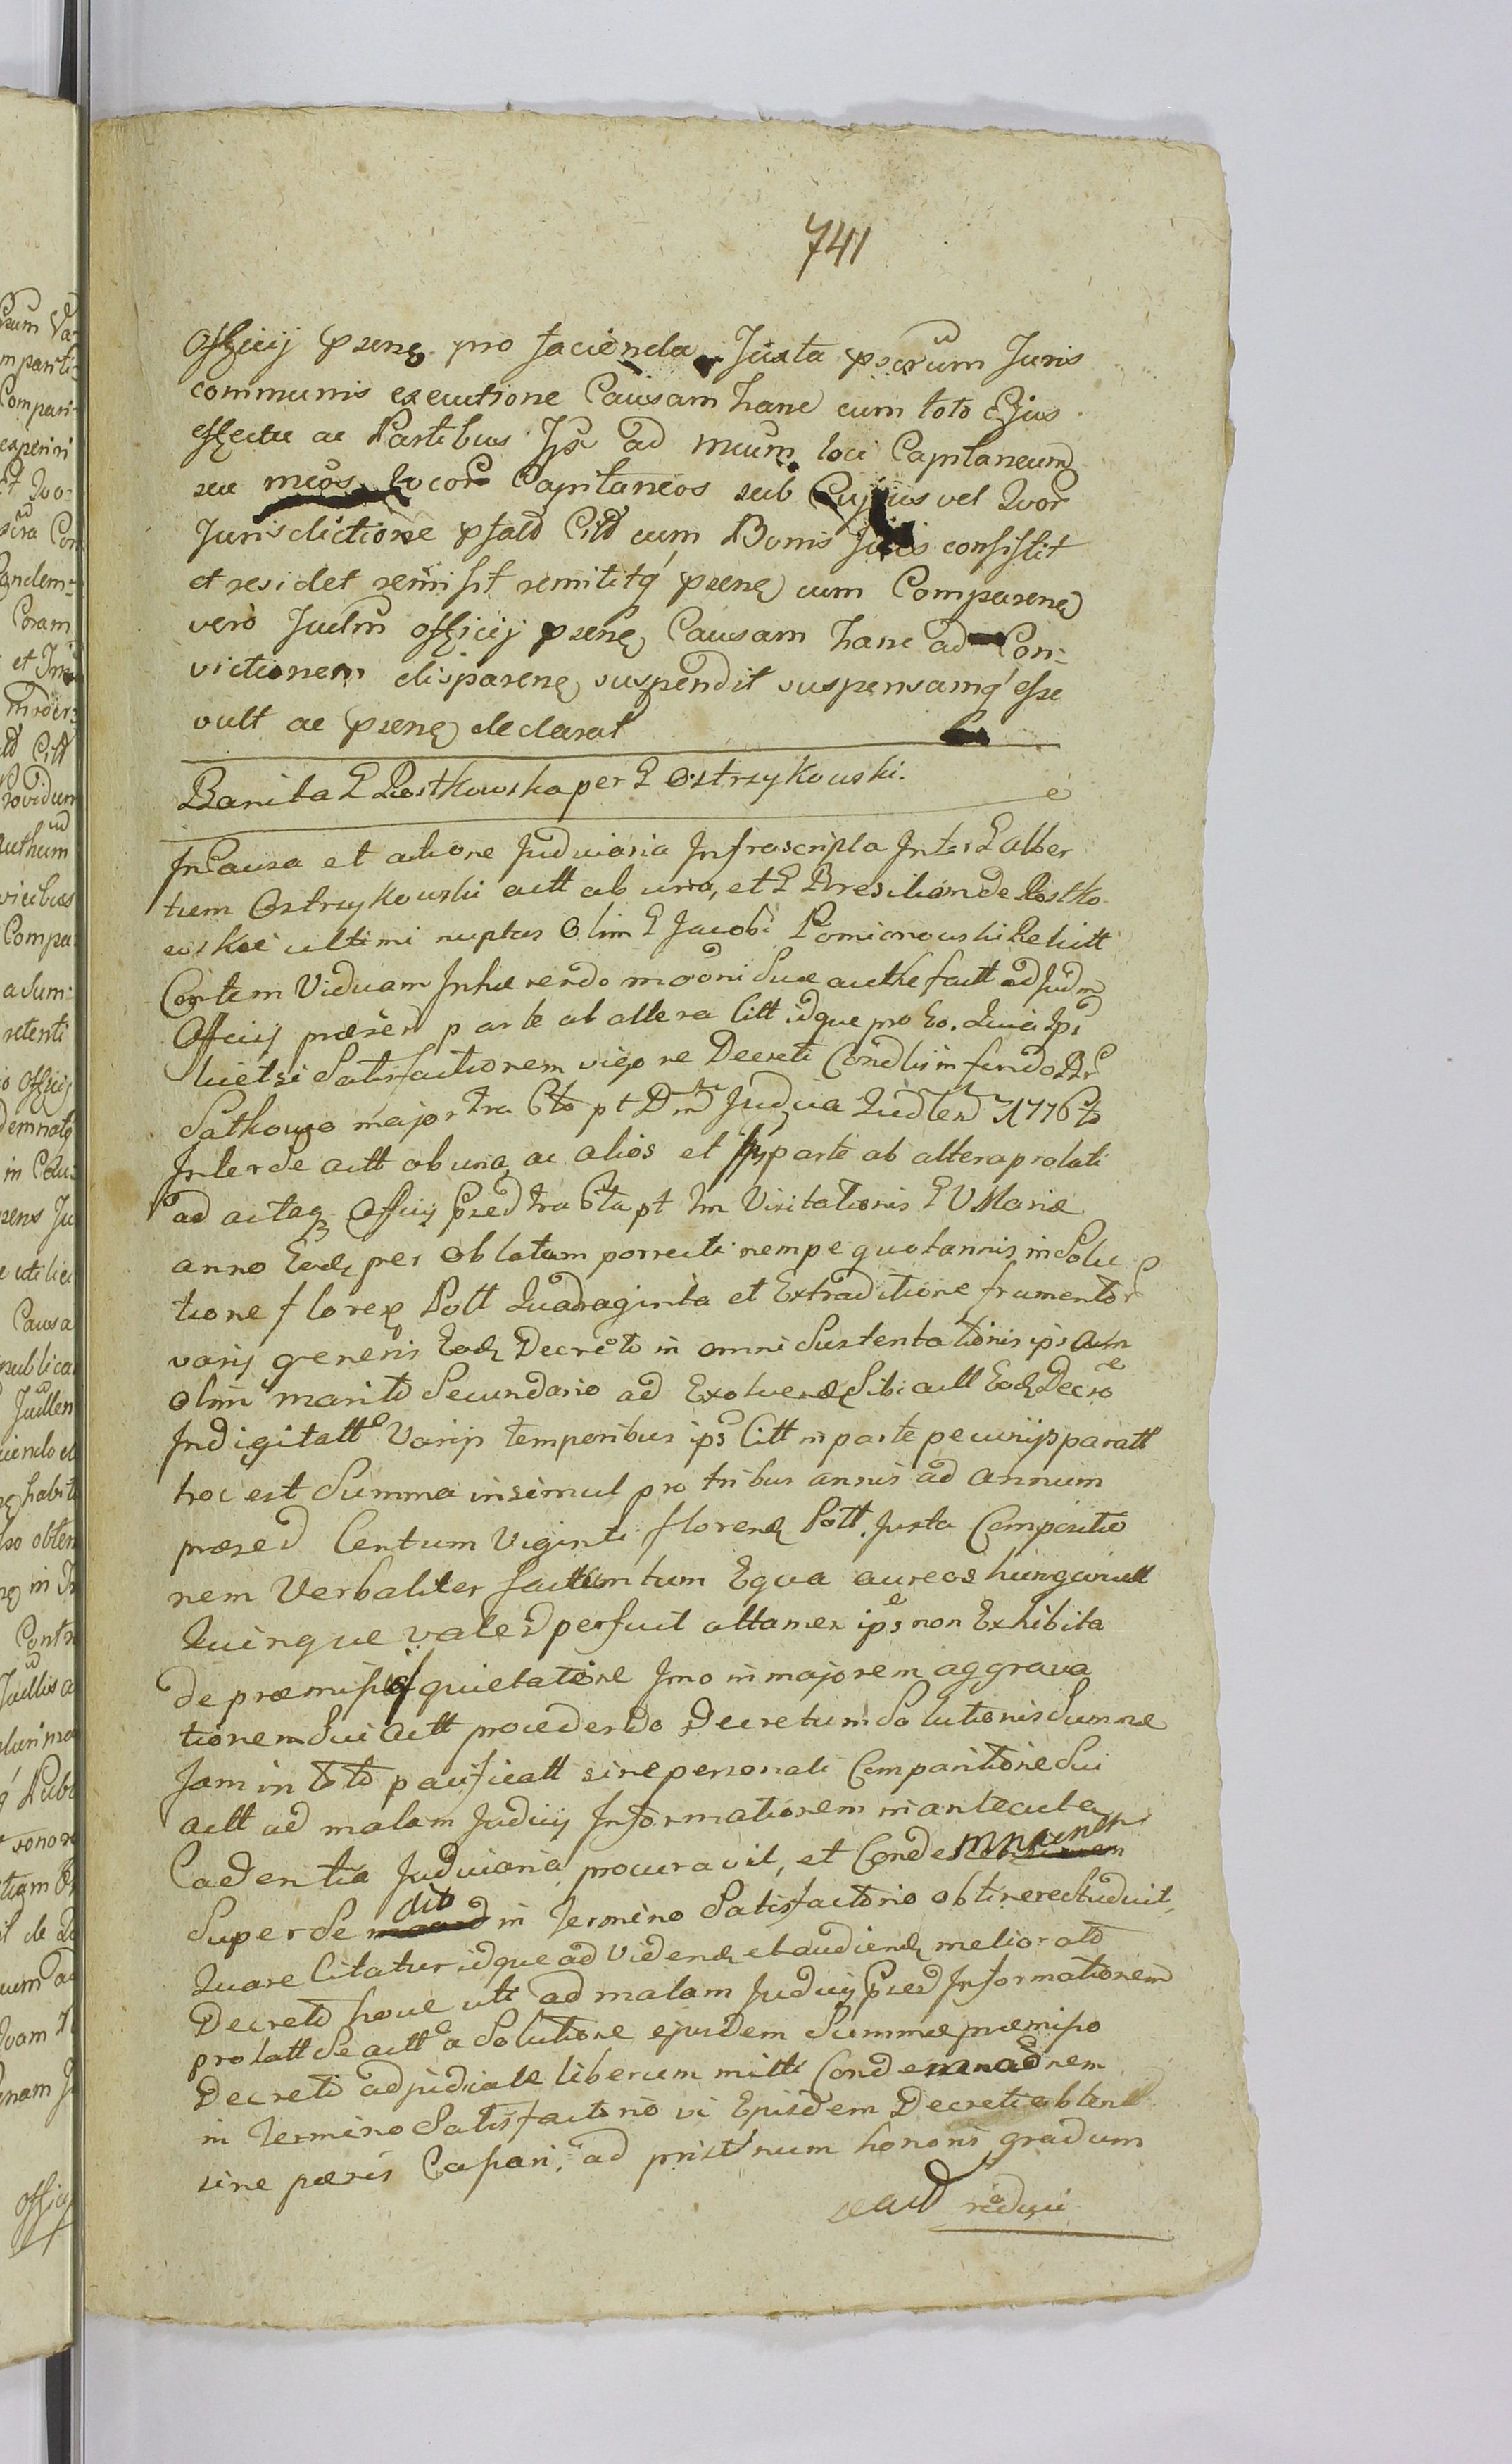 741
Officij prsene pro facienda Juxta prscrum Juris
communis executione Causam hanc cum toto Ejus
effectu ac Partibus Ips ad mcum loci Capitaneum
seu mcos Locor Capitaneos sub Cujus vel Quor
Jurisdictione psatd Citt cum Bonis consistit
et residet remisit remititq prsene cum Comparene
vero Judm officij prsene Causam hanc ad Con=
victionem disparene suspendit suspensamq esse
vult ac prsene declarat
Banita G Rostkowska per G Ostrzykowski.
In Causa et actione Judiciaria Infrascripta Inter G alber
tum Ostrzykowski actt ab una, et G Bresilian de Rostko
wskie ultimi nuptas Olim G Jacobi Pomianowski Relictt
Contem Viduam Inhærendo mooni Suæ authe factt ad Judm
Officij præsed parte ab altera Citt idque pro Eo. Quia Ips
licet si Satisfactionem vigore Decreti Condlis in fundo Br
Satkowo major tra 6to pt Dm Judicia 1776to
Inter Se actt ab una, ac alios et parte ab altera prolati
ad actaq Officij Præd tra 6ta pt tm Visitationis B V Mariæ
anno Eode per Oblatam porrecti nempe quotannis in Solu
tione florex Poll Quadraginta et Extraditione frumentor
varij generis Eode Decreto in omni Sustentationis ips cum
olim marito Secundario ad Exolvend Sibi actt Eode Decro
Indigitatt Varijs temporibus ips Citt in parte pecunijs paratt
hoc est Summa insimul pro tribus annis ad annum
præsed Centum Viginti florene Poll. Juxta Compositio
nem Verbaliter factam tum Equa aureos hungaricall
Quinque valed perfuit attamen ips non Exhibita
de præmiss quietatione Imo in majorem aggrava
tionem Sui actt procedendo Decretum Solutionis Summæ
Jam in toto pacificatt sine personali Comparitione Sui
actt ad malam Judicij Informationem in anteacta
Cadentia Judiciaria procuravit, et Condemnaonem
Super Se dito in Termino Satisfactorio obtinere studuit,
Quare Citatur idque ad Videnda et audiende meliorato
Decreto hocce uti ad malam Judicij Præd Informationem
prolatt Se actt a Solutione ejusdem Summæ præmisso
Decreto adjudicatæ liberum mitti Condemnaonem
in Termino Satisfactorio vi Ejusdem Decreti obtent
sine pæris Cassari, ad pristinum honoris gradum
se actt reduci